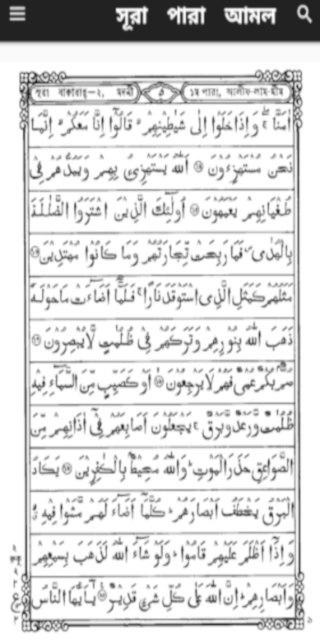 সূরা পারা আমল
সূরা বাকারাহ-২, মদনী ৫ ১ম পারা, আলীফ-লাম-মীম
اٰمَنَّا ۚۖ وَاِذَا خَلَوْا اِلٰى شَيٰطِيْنِهِمْ ۙ قَالُوْٓا اِنَّا مَعَكُمْ ۙ اِنَّمَا
نَحْنُ مُسْتَهْزِءُوْنَ ⑭ اَللّٰهُ يَسْتَهْزِئُ بِهِمْ وَيَمُدُّهُمْ فِيْ
طُغْيَانِهِمْ يَعْمَهُوْنَ ⑮ اُولٰٓئِكَ الَّذِيْنَ اشْتَرَوُا الضَّلٰلَةَ
بِالْهُدٰى ۪ فَمَا رَبِحَتْ تِّجَارَتُهُمْ وَمَا كَانُوْا مُهْتَدِيْنَ ⑯
مَثَلُهُمْ كَمَثَلِ الَّذِى اسْتَوْقَدَ نَارًا ۚ فَلَمَّآ اَضَآءَتْ مَا حَوْلَهٗ
ذَهَبَ اللّٰهُ بِنُوْرِهِمْ وَتَرَكَهُمْ فِيْ ظُلُمٰتٍ لَّا يُبْصِرُوْنَ ⑰
صُمٌّۢ بُكْمٌ عُمْيٌ فَهُمْ لَا يَرْجِعُوْنَ ⑱ اَوْ كَصَيِّبٍ مِّنَ السَّمَآءِ فِيْهِ
ظُلُمٰتٌ وَّرَعْدٌ وَّبَرْقٌ ۚ يَجْعَلُوْنَ اَصَابِعَهُمْ فِيْٓ اٰذَانِهِمْ مِّنَ
الصَّوَاعِقِ حَذَرَ الْمَوْتِ ؕ وَاللّٰهُ مُحِيْطٌۢ بِالْكٰفِرِيْنَ ⑲ يَكَادُ
الْبَرْقُ يَخْطَفُ اَبْصَارَهُمْ ؕ كُلَّمَآ اَضَآءَ لَهُمْ مَّشَوْا فِيْهِ ۙ
وَاِذَآ اَظْلَمَ عَلَيْهِمْ قَامُوْا ؕ وَلَوْ شَآءَ اللّٰهُ لَذَهَبَ بِسَمْعِهِمْ
وَاَبْصَارِهِمْ ؕ اِنَّ اللّٰهَ عَلٰى كُلِّ شَيْءٍ قَدِيْرٌ ⑳ يٰٓاَيُّهَا النَّاسُ